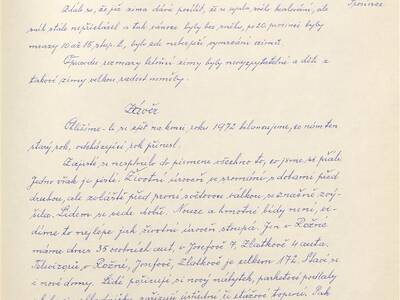 Prosinec
Zdálo se, že již zima dává pocítit, že se ujala svého kralování, ale
sníh stále nepřicházel a tak vánoce byly bez sněhu, po 20. prosinci byly
mrazy 10 až 15 stup. C, bylo zde nebezpečí vymrzání ozimů.
Opravdu rozmary letošní zimy byly nevyzpytatelné a děti z
takové zimy velkou radost neměly.
Závěr
Ohlížíme-li se zpět na konci roku 1972 bilancujeme, co nám ten
starý rok, odcházející rok přinesl.
Zajisté se nesplnilo do písmene všechno to, co jsme si přáli.
Jedno však je jisté. Životní úroveň ve srovnání s dobami před
druhou, ale zvláště před první světovou válkou se značně zvý-
šila. Lidem se vede dobře. Nouze a hmotné bídy není, vi-
díme to nejlépe jak životní úroveň stoupá. Jen v Rožné
máme dnes 35 osobních aut, v Josefově 7, Zlatkově 4 auta.
Televizorů v Rožné, Josefově, Zlatkově je celkem 172. Staví se
nové domy. Lidé pořizují si nový nábytek, parketové podlahy
ústřední či etážové topení. Pak